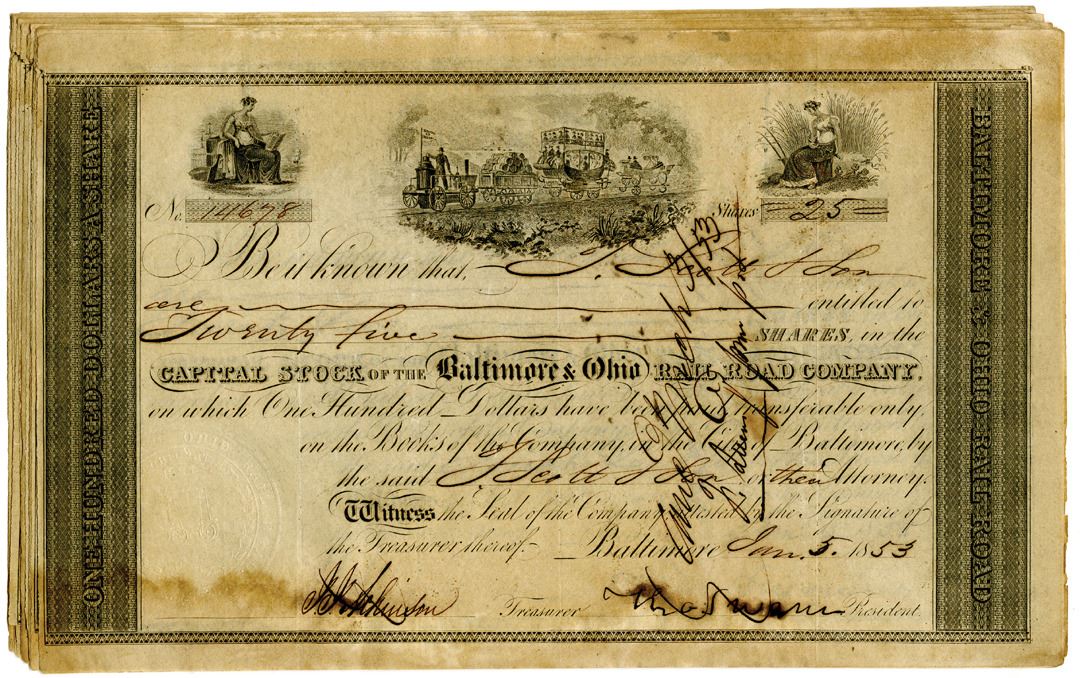 ONE HUNDRED DOLLARS A SHARE
No. 14678
Shares 25
Be it known that, J. Scott & Son
are entitled to
Twenty five SHARES, in the
CAPITAL STOCK OF THE Baltimore & Ohio RAIL ROAD COMPANY,
on which One Hundred Dollars have been transferable only
on the Books of the Company, in the Baltimore, by
the said J. Scott & Son or their Attorney.
Witness the Seal of the Company attested by the Signature of
the Treasurer thereof. Baltimore Jan. 5. 1853
Treasurer Tho Swann President.
BALTIMORE & OHIO RAIL ROAD